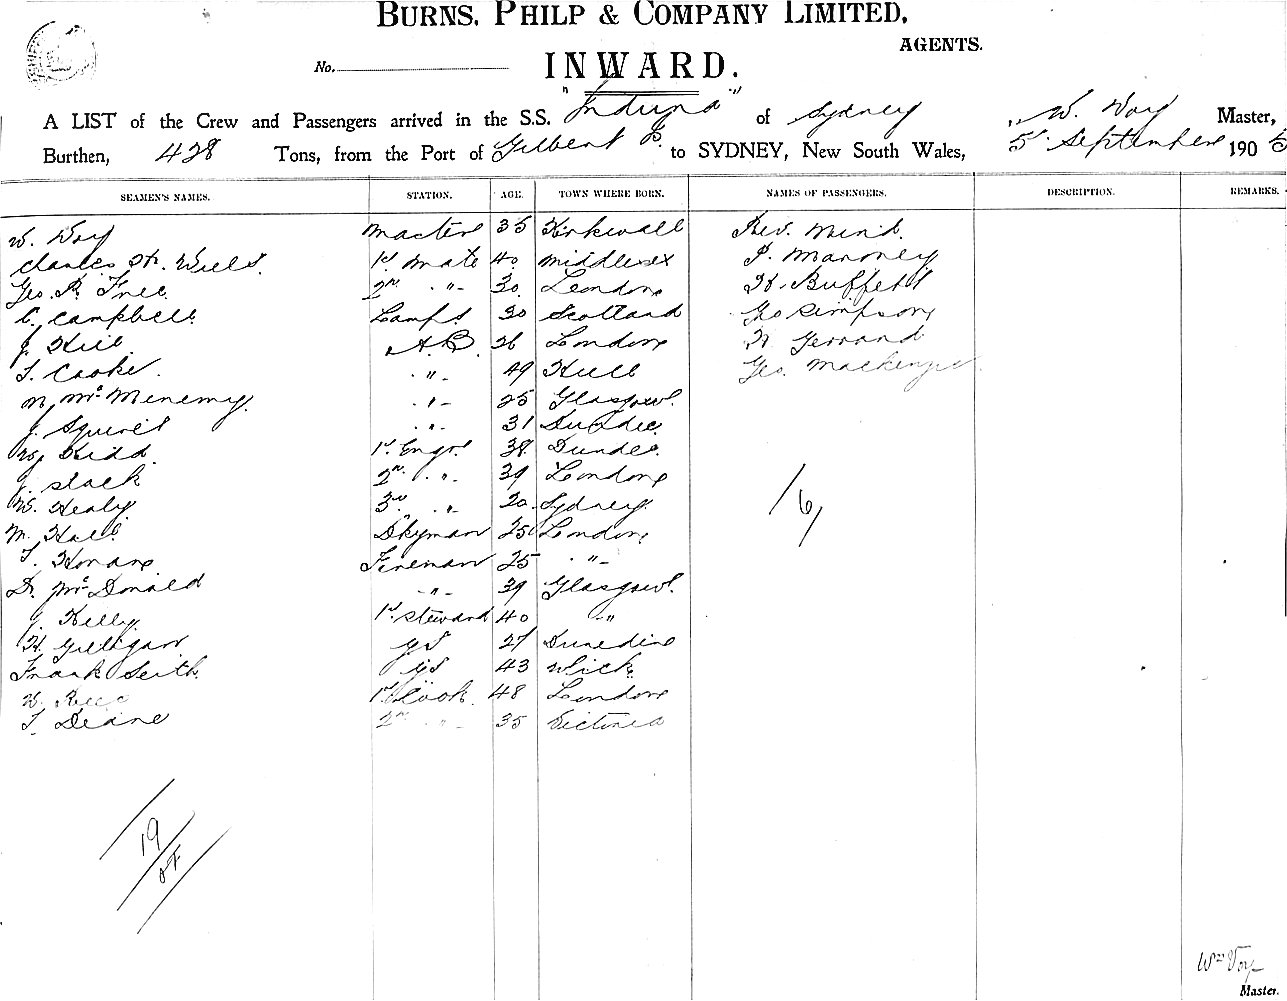 BURNS, PHILP & COMPANY LIMITED,
AGENTS.
No.
INWARD.
A LIST of the Crew and Passengers arrived in the S.S. "Induna" of Sydney, W. Voy Master,
Burthen, 428 Tons, from the Port of Gilbert Is. to SYDNEY, New South Wales, 5 September 190
SEAMEN'S NAMES. STATION. AGE. TOWN WHERE BORN. NAMES OF PASSENGERS. DESCRIPTION. REMARKS.
W. Voy Master 35 Kirkwall Rev. Mind.
Charles Wills. 1st Mate 40 Middlesex P. Maroney
Geo. R. Free. 2nd -"- 30 London H. Buffett
C. Campbell Lamps 30 Scotland Geo Simpson
J. Hill A.B. 26 London Gerrand
T. Cooke. -"- 49 Hull Geo. Mackenzie
N. McMenemy -"- 25 Glasgow.
J. Squires -"- 31 Dundee.
Kidd. 1st Engr. 38 Dundee.
J. Slack 2nd -"- 39 London
W. Healy 3rd -"- 20 Sydney.
M. Hall Dkyman 25 London
T. Horan Fireman 25 -"-
D. McDonald -"- 39 Glasgow.
J. Kelly. 1st Steward 40 -"-
H. Gilligan GS 27 Dunedin
Frank Seith. GS 43 Wick.
1st Cook. 48 London
T. Deane 2nd -"- 35 Victoria
/6/
19
Wm Voy
Master.